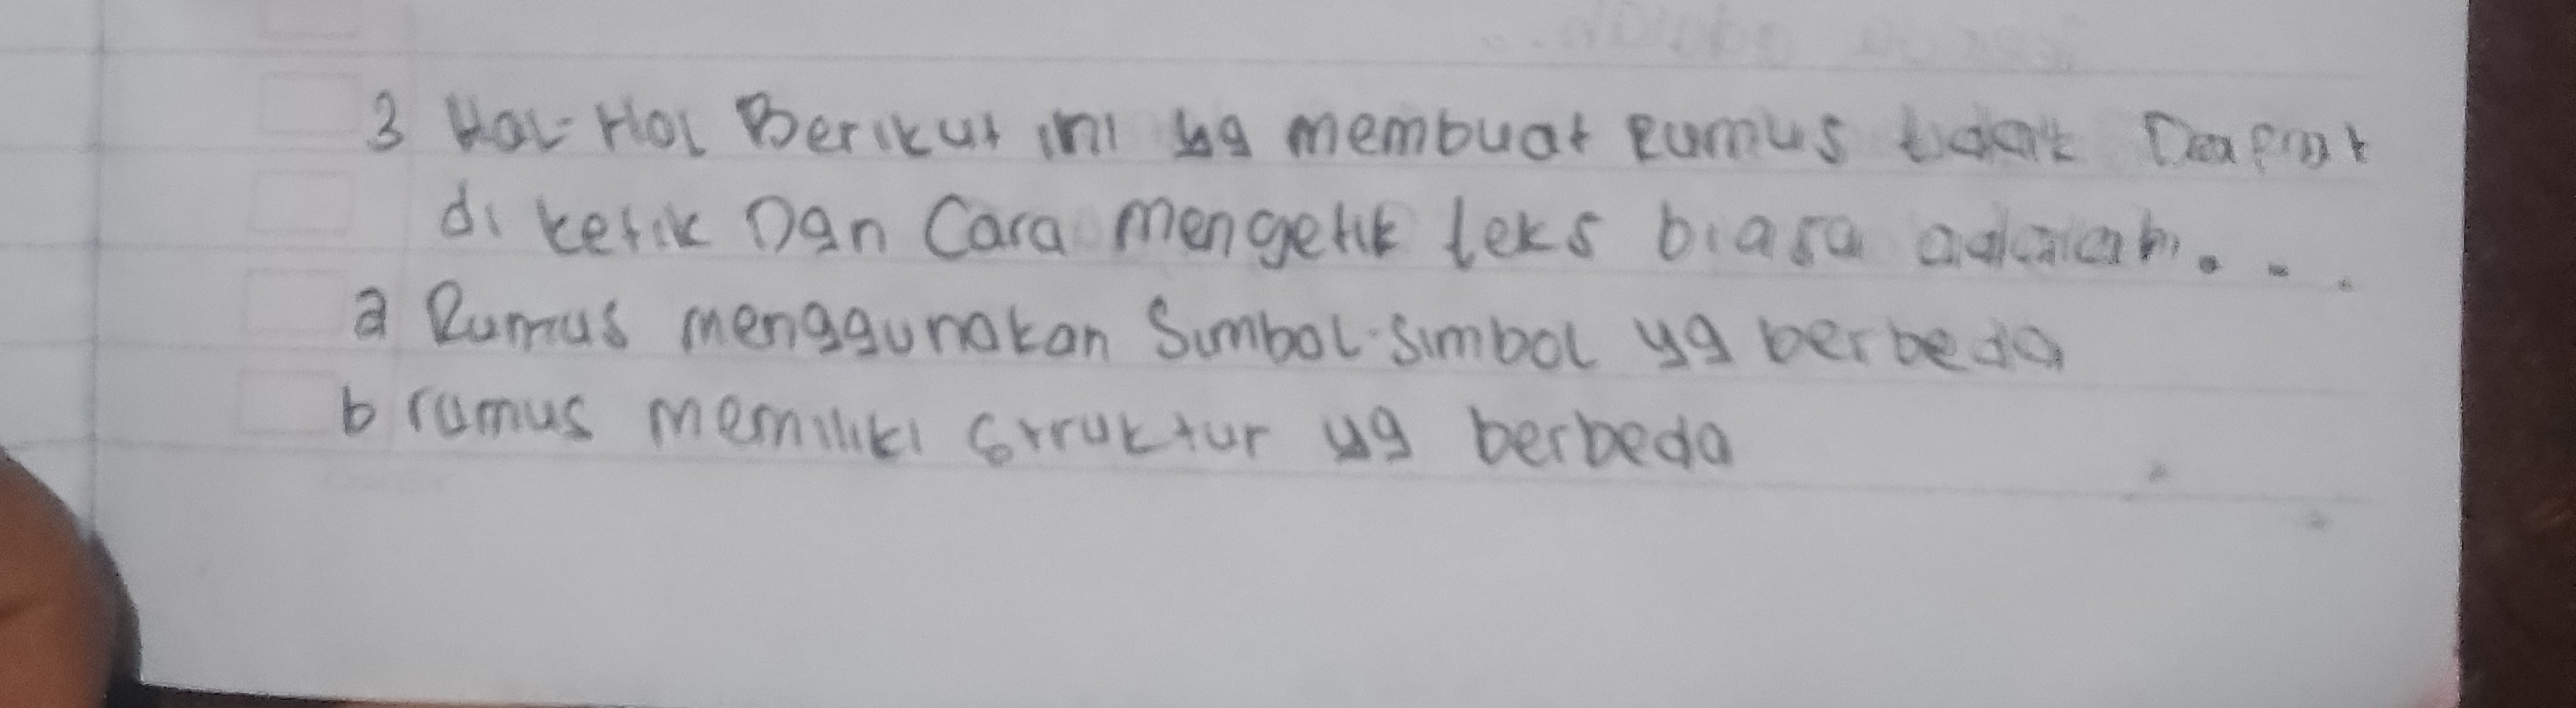 3 Hal-Hal Berikut ini yg membuat Rumus tidak Dapat
di ketik Dan Cara mengetik teks biasa adalah...
a Rumus menggunakan Simbol-simbol yg berbeda
b rumus memiliki Struktur yg berbeda